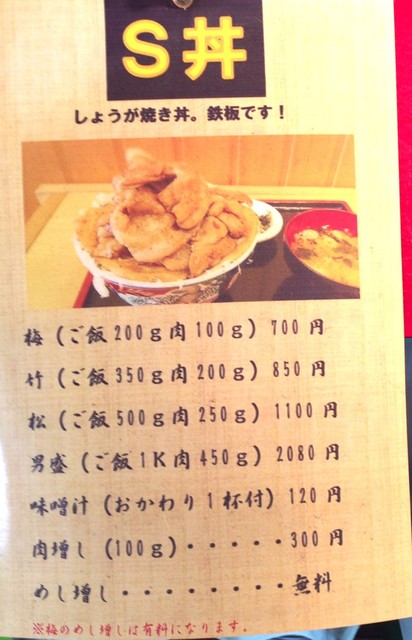 S丼
しょうが焼き丼。鉄板です！
梅（ご飯200g肉100g）700円
竹（ご飯350g肉200g）850円
松（ご飯500g肉250g）1100円
男盛（ご飯1K肉450g）2080円
味噌汁（おかわり1杯付）120円
肉増し（100g）・・・・・300円
めし増し・・・・・・・・無料
※梅のめし増しは有料になります。